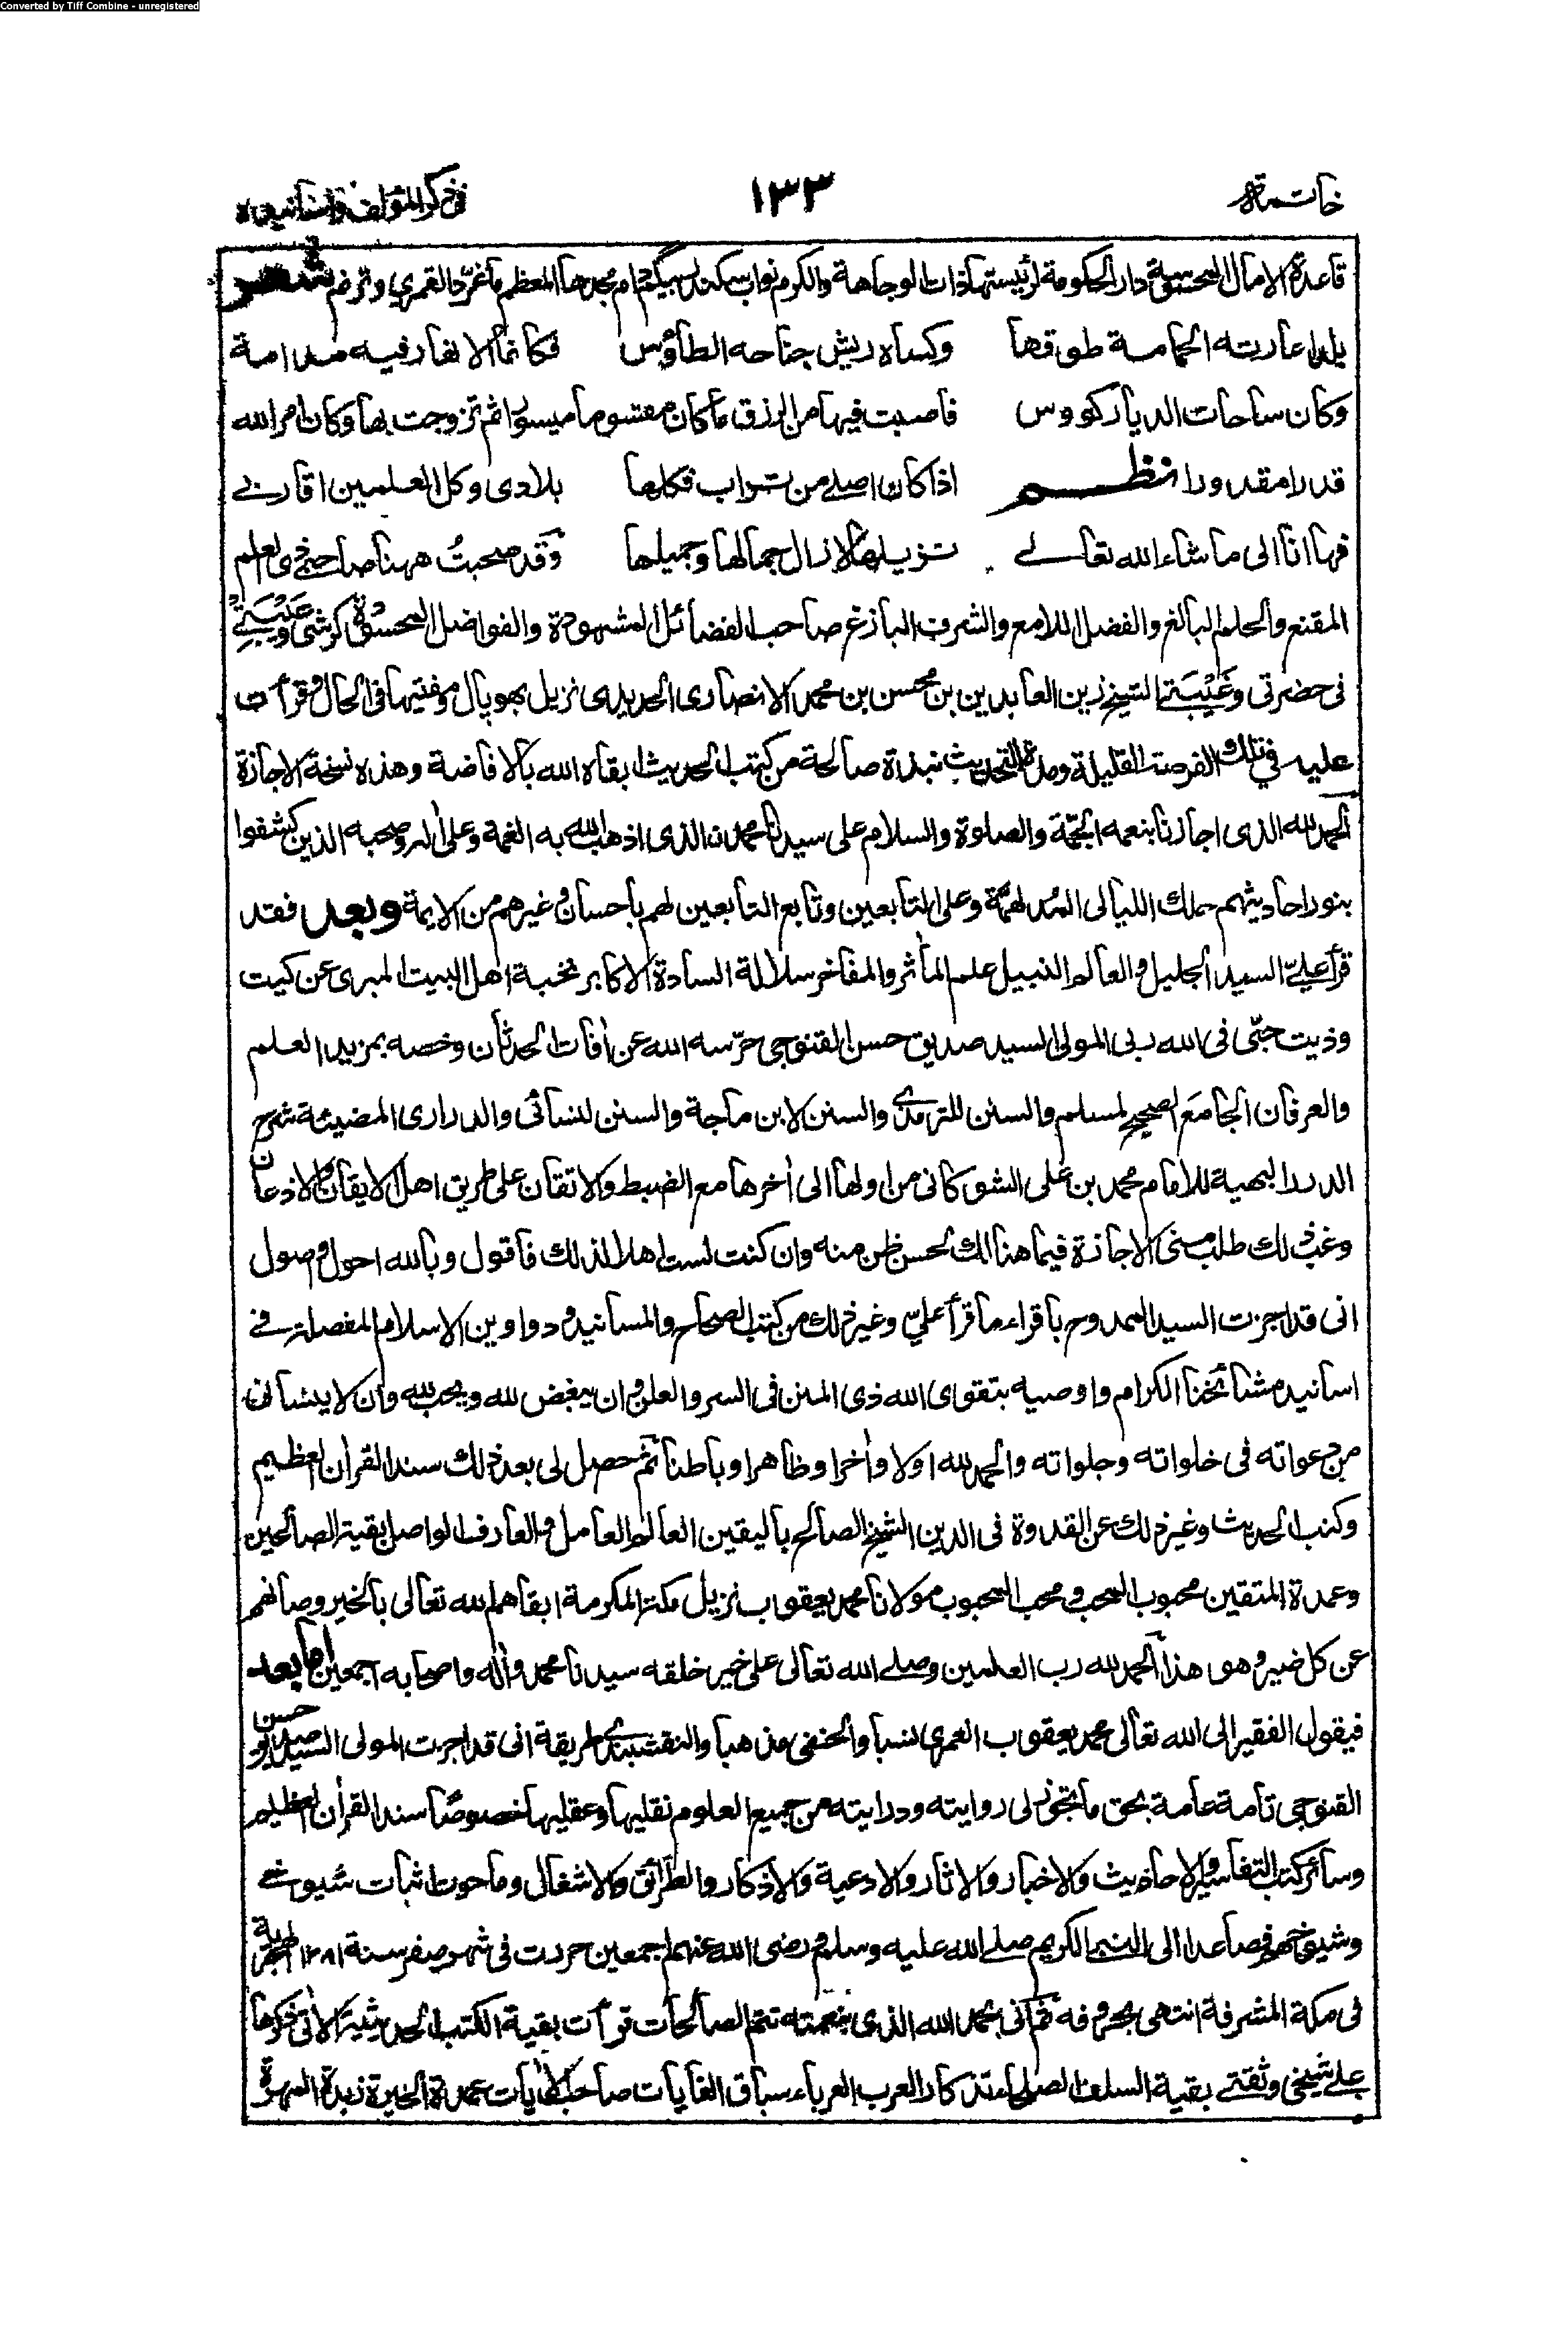 Converted by Tiff Combine - unregistered
خاتمة ١٣٣ في ذكر المؤلف واسانيده
قاعدة الامال المحسية دار الحكومة لرئيستها ذات الوجاهة والكرم نواب سكندر بيگم ادام مجدها المعظم ما غرّد القمري وترنم شعر
بلد اعارته الحمامة طوقها وكساه ريش جناحه الطاؤس فكانما الانهار فيه مدامة
وكان ساحات الديار كووس فاصبت فيها من الرزق ما كان مقسوما ميسورا ثم تزوجت بها وكان امر الله
قدرا مقدورا نظم اذا كان اصلے من تراب فكلها بلادى وكل العلمين اقاربے
فها انا الى ما شاء الله تعالے نزيلها لا زال جمالها وجميلها وقد صحبتُ ههنا صاحبے ذى العلم
المقنع والحلم البالغ والفضل اللامع والشرف البازغ صاحب الفضائل المشهودة والفواضل المحسودة كرشى وعيبتے
فى حضرتى وغَيْبَتے الشيخ زين العابدين بن محسن بن محمد الانصارى الحديدى نزيل بهوپال ومفتيها فى الحال وقرأت
عليه في تلك الفرصة القليلة ومدة التحديث نبذة صالحة من كتب الحديث ابقاه الله بالافاضة وهذه نسخة الاجازة
الحمد لله الذى اجازنا بنعمه الجمّة والصلوة والسلام على سيدنا محمد ن الذى اذهب الله به الغمة وعلى اله وصحبه الذين كشفوا
بنور احاديثهم حلك الليالى المُدلهمّة وعلى التابعين وتابع التابعين لهم باحسان وغيرهم من الايمة وبعد فقد
قرأ عليّ السيد الجليل والعالم النبيل علم المأثر والمفاخر سلالة السادة الاكابر نخبة اهل البيت المبرى عن كيت
وذيت حبّى فى الله ربى المولى السيد صديق حسن القنوجى حرّسه الله عن أفات الحدثان وخصه بمزيد العلم
والعرفان الجامع الصحيح لمسلم والسنن للترمذے والسنن لابن ماجة والسنن للنسائى والدرارى المضيئة شرح
الدرر البهية للامام محمد بن على الشوكانى من اولها الى أخرها مع الضبط والاتقان على طريق اهل الايقان والاذعان
وغب ذلك طلب منى الاجازة فيما هنالك لحسن ظن منه وان كنت لست اهلا لذلك فاقول وبالله احول واصول
انى قد اجزت السيد الممدوح باقراء ما قرأ عليّ وغير ذلك من كتب الصحاح والمسانيد ودواوين الاسلام المفصلة في
اسانيد مشائخنا الكرام واوصيه بتقوى الله ذى المنن فى السر والعلن وان يبغض لله ويحب لله وان لا ينسانى
من دعواته فى خلواته وجلواته والحمد لله اولا وأخرا وظاهرا وباطنا ثم حصل لى بعد ذلك سند القران العظيم
وكتب الحديث وغير ذلك عن القدوة فى الدين الشيخ الصالح باليقين العالم العامل والعارف الواصل بقية الصالحين
وعمدة المتقين محبوب المحب ومحب المحبوب مولانا محمد يعقوب نزيل مكة المكرمة ابقاهم الله تعالى بالخير وصانهم
عن كل ضير وهو هذا الحمد لله رب العلمين وصلے الله تعالى على خير خلقه سيدنا محمد واله واصحابه اجمعين اما بعد
فيقول الفقير الى الله تعالى محمد يعقوب العمرى نسبا والحنفى مذهبا والنقشبندى طريقة انى قد اجرت المولى السيد صديق حسن
القنوجى تامة عامة بحق ما تجوز لى روايته ودرايته من جميع العلوم نقليها وعقليها خصوصًا سند القرأن العظيم
وسائر كتب التفاسير والاحاديث والاخبار والاثار والادعية والاذكار والطرائق والاشغال وما حوت اثبات شيوخے
وشيوخهم فصاعدا الى النبي الكريم صلے الله عليه وسلم ورضى الله عنهم اجمعين حررت فى شهر صفر سنة ١٢٨١ الهجرية
فى مكة المشرفة انتهى بحروفه ثم انى بحمد الله الذى بنعمته تتم الصالحات قرأت بقية الكتب الحديثية الأتى ذكرها
علے شيخى وثقتے بقية السلف الصلحاء تذكار العرب العرباء سباق الغايات صاحب الأيات عمدة الخيرة زبدة المهرة